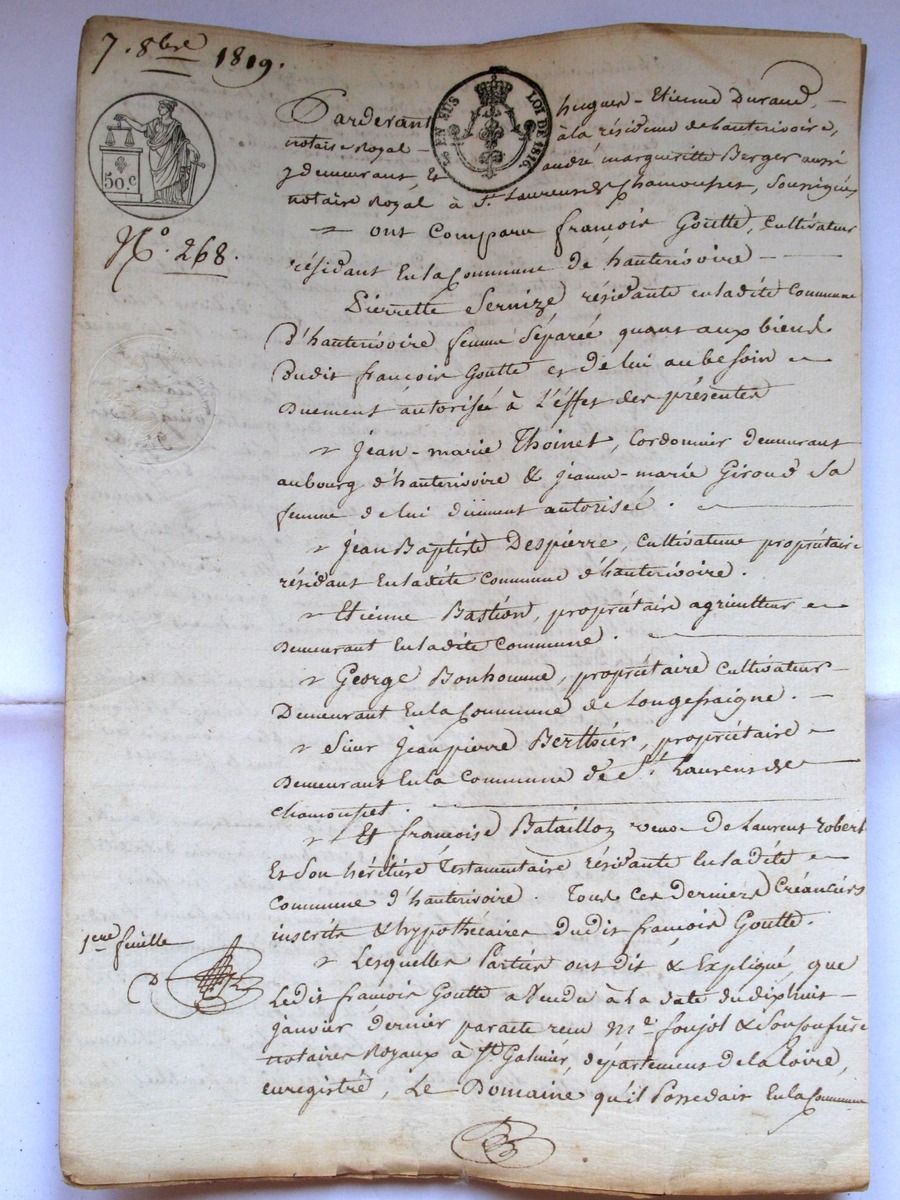 7. 8bre 1819.
50.C
EN SUS
LOI DE 1816.
N° 268.
Pardevant hugues-Etienne Durand, —
notaire Royal — à la résidence de hauterivoire,
y demeurant, Et andré margueritte Berger aussi
notaire Royal à St. Laurens de Chamousset, Soussignés
ont Comparu françois Goutte, Cultivateur
résidant En la Commune de hauterivoire —
Pierrette Sernize résidante en ladite Commune
d'hauterivoire femme Séparée quant aux biens
Dudit françois Goutte et de lui au besoin
Duement autorisée à L'éffet des présentes
Jean-marie Thoinet, Cordonnier demeurant
au bourg d'hauterivoire & Jeanne-marie Giroud Sa
femme de lui dûment autorisée.
Jean Baptiste Despierre, Cultivateur propriétaire
résidant En ladite Commune d'hauterivoire.
Etienne Bastion, propriétaire agriculteur
Demeurant En ladite Commune.
George Bonhomme, propriétaire Cultivateur
Demeurant En la Commune de Longessaigne. —
Sieur Jean pierre Berthier, propriétaire
Demeurant En la Commune de St. Laurens de
Chamousset.
Et francoise Bataillon veuve De Laurent robert
Et Son héritière Testamentaire résidante En ladite
Commune d'hauterivoire. Tous Ces derniers Créanciers
inscrits & hypothécaires dudit françois Goutte.
1ere feuille
Lesquelles Parties ont dit & Expliqué, que
Ledit françois Goutte a Vendu à La date du dixhuit
janvier dernier par acte recu Me. foujol & Son Confrère
notaires Royaux à St Galmier, département de la Loire,
enregistré, Le Domaine qu'il Possedait En la Commune